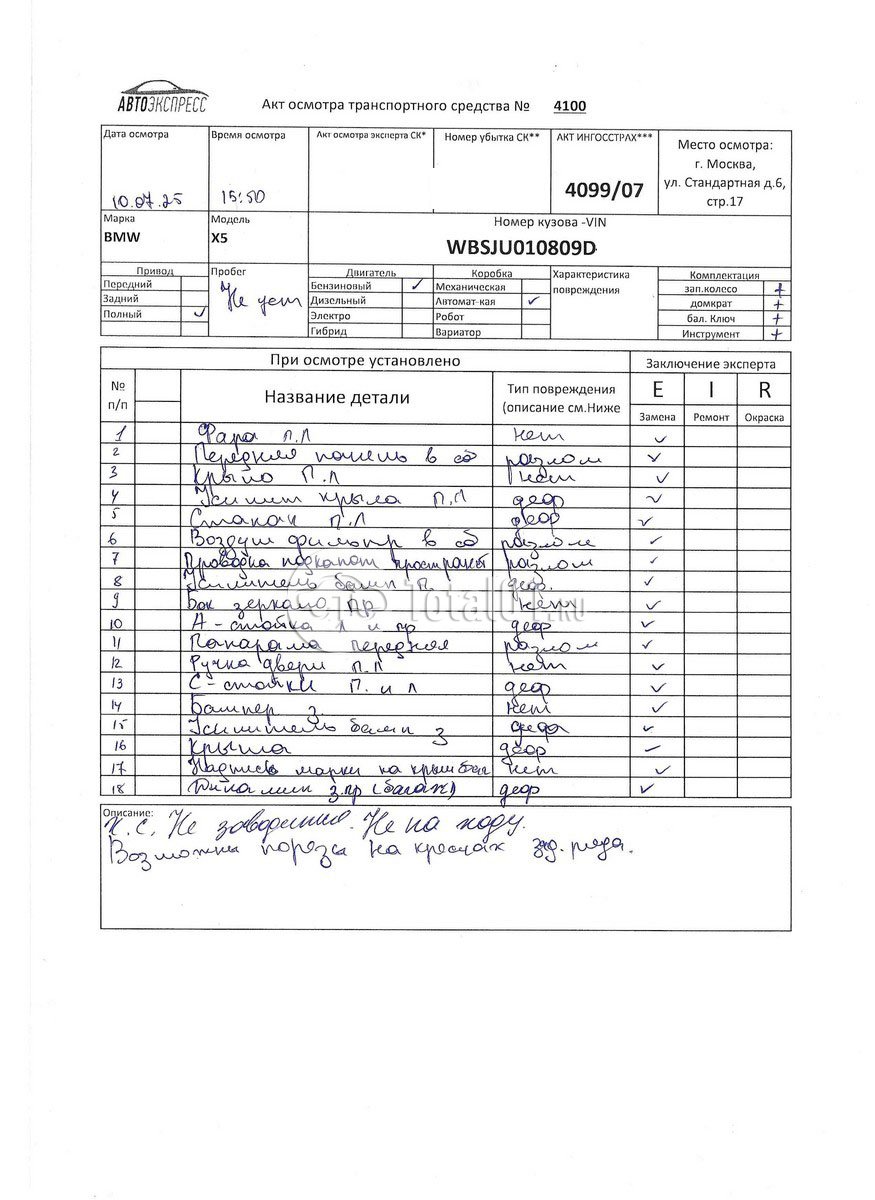 АВТОЭКСПРЕСС
Акт осмотра транспортного средства № 4100
Дата осмотра Время осмотра Акт осмотра эксперта СК* Номер убытка СК** АКТ ИНГОССТРАХ*** Место осмотра:
г. Москва,
10.07.25 15:50 4099/07 ул. Стандартная д.6,
стр.17
Марка Модель Номер кузова -VIN
BMW X5 WBSJU010809D
Привод Пробег Двигатель Коробка Характеристика Комплектация
Передний Не уст Бензиновый ✓ Механическая повреждения зап.колесо +
Задний Дизельный Автомат-кая ✓ домкрат +
Полный ✓ Электро Робот бал. Ключ +
Гибрид Вариатор Инструмент +
При осмотре установлено Заключение эксперта
№ п/п Название детали Тип повреждения (описание см.Ниже E I R
Замена Ремонт Окраска
1 Фара п.л нет ✓
2 Передняя панель в сб разлом ✓
3 Крыло П.л нет ✓
4 Усилит крыла П.Л деф ✓
5 Стакан П.Л деф ✓
6 Воздуш фильтр в сб разлом ✓
7 Проводка подкапот простран разлом ✓
8 Усилитель бамп П. деф. ✓
9 Бок зеркало пр нет ✓
10 А-стойка л и пр деф ✓
11 Панорама передняя разлом ✓
12 Ручка двери п.л нет ✓
13 С-стойки П. и л деф ✓
14 Бампер з. нет ✓
15 Усилитель бамп з ✓
16 Крыша деф ✓
17 Надпись марки на нет ✓
18 з.пр (багаж) деф ✓
Описание:
К.С. Не заводится. Не на ходу.
Возможны порезы на креслах зд. ряда.
Total01.RU